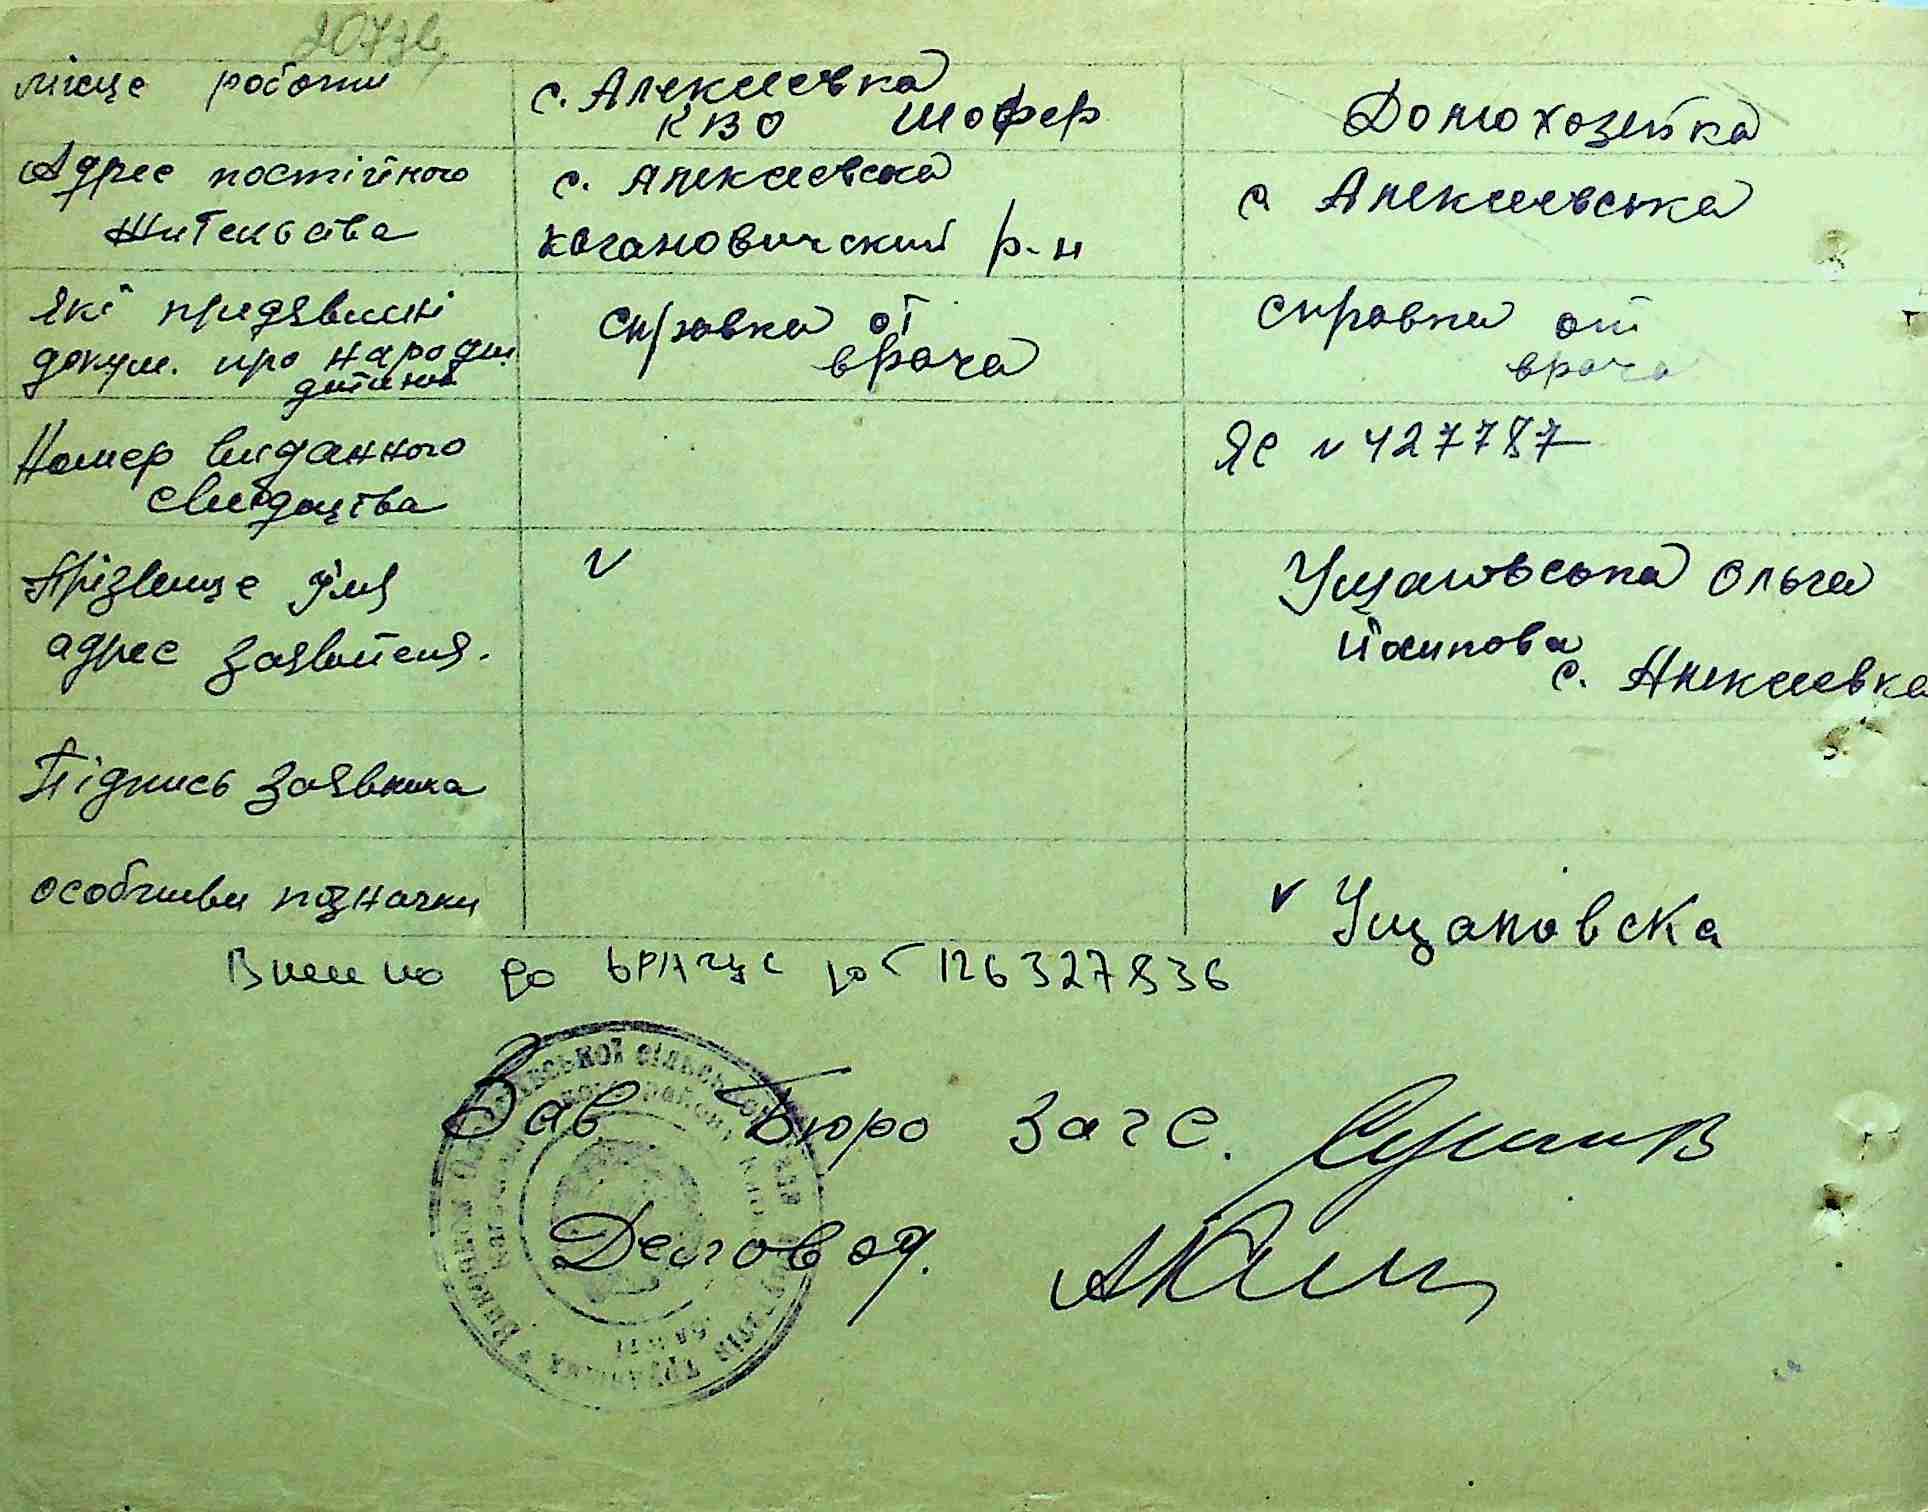 місце роботи
с. Алексеевка
КВО Шофер
Домохозейка
Адрес постійного
жительства
с. Алексеевка
Когановичский р-н
с Алексеевська
які предявлені
докум. про народж.
дитини
справка от
врача
справка от
врача
Номер виданного
свидоцтва
ЯС № 427787
Прізвище Імя
адрес заявителя.
v
Ущаповська Ольга
Йосипова
с. Алексеевка
Підпись заявника
особливи позначки
v Ущаповска
Внесено до ДРАЦС 126327836
Зав Бюро загс.
Деловод.